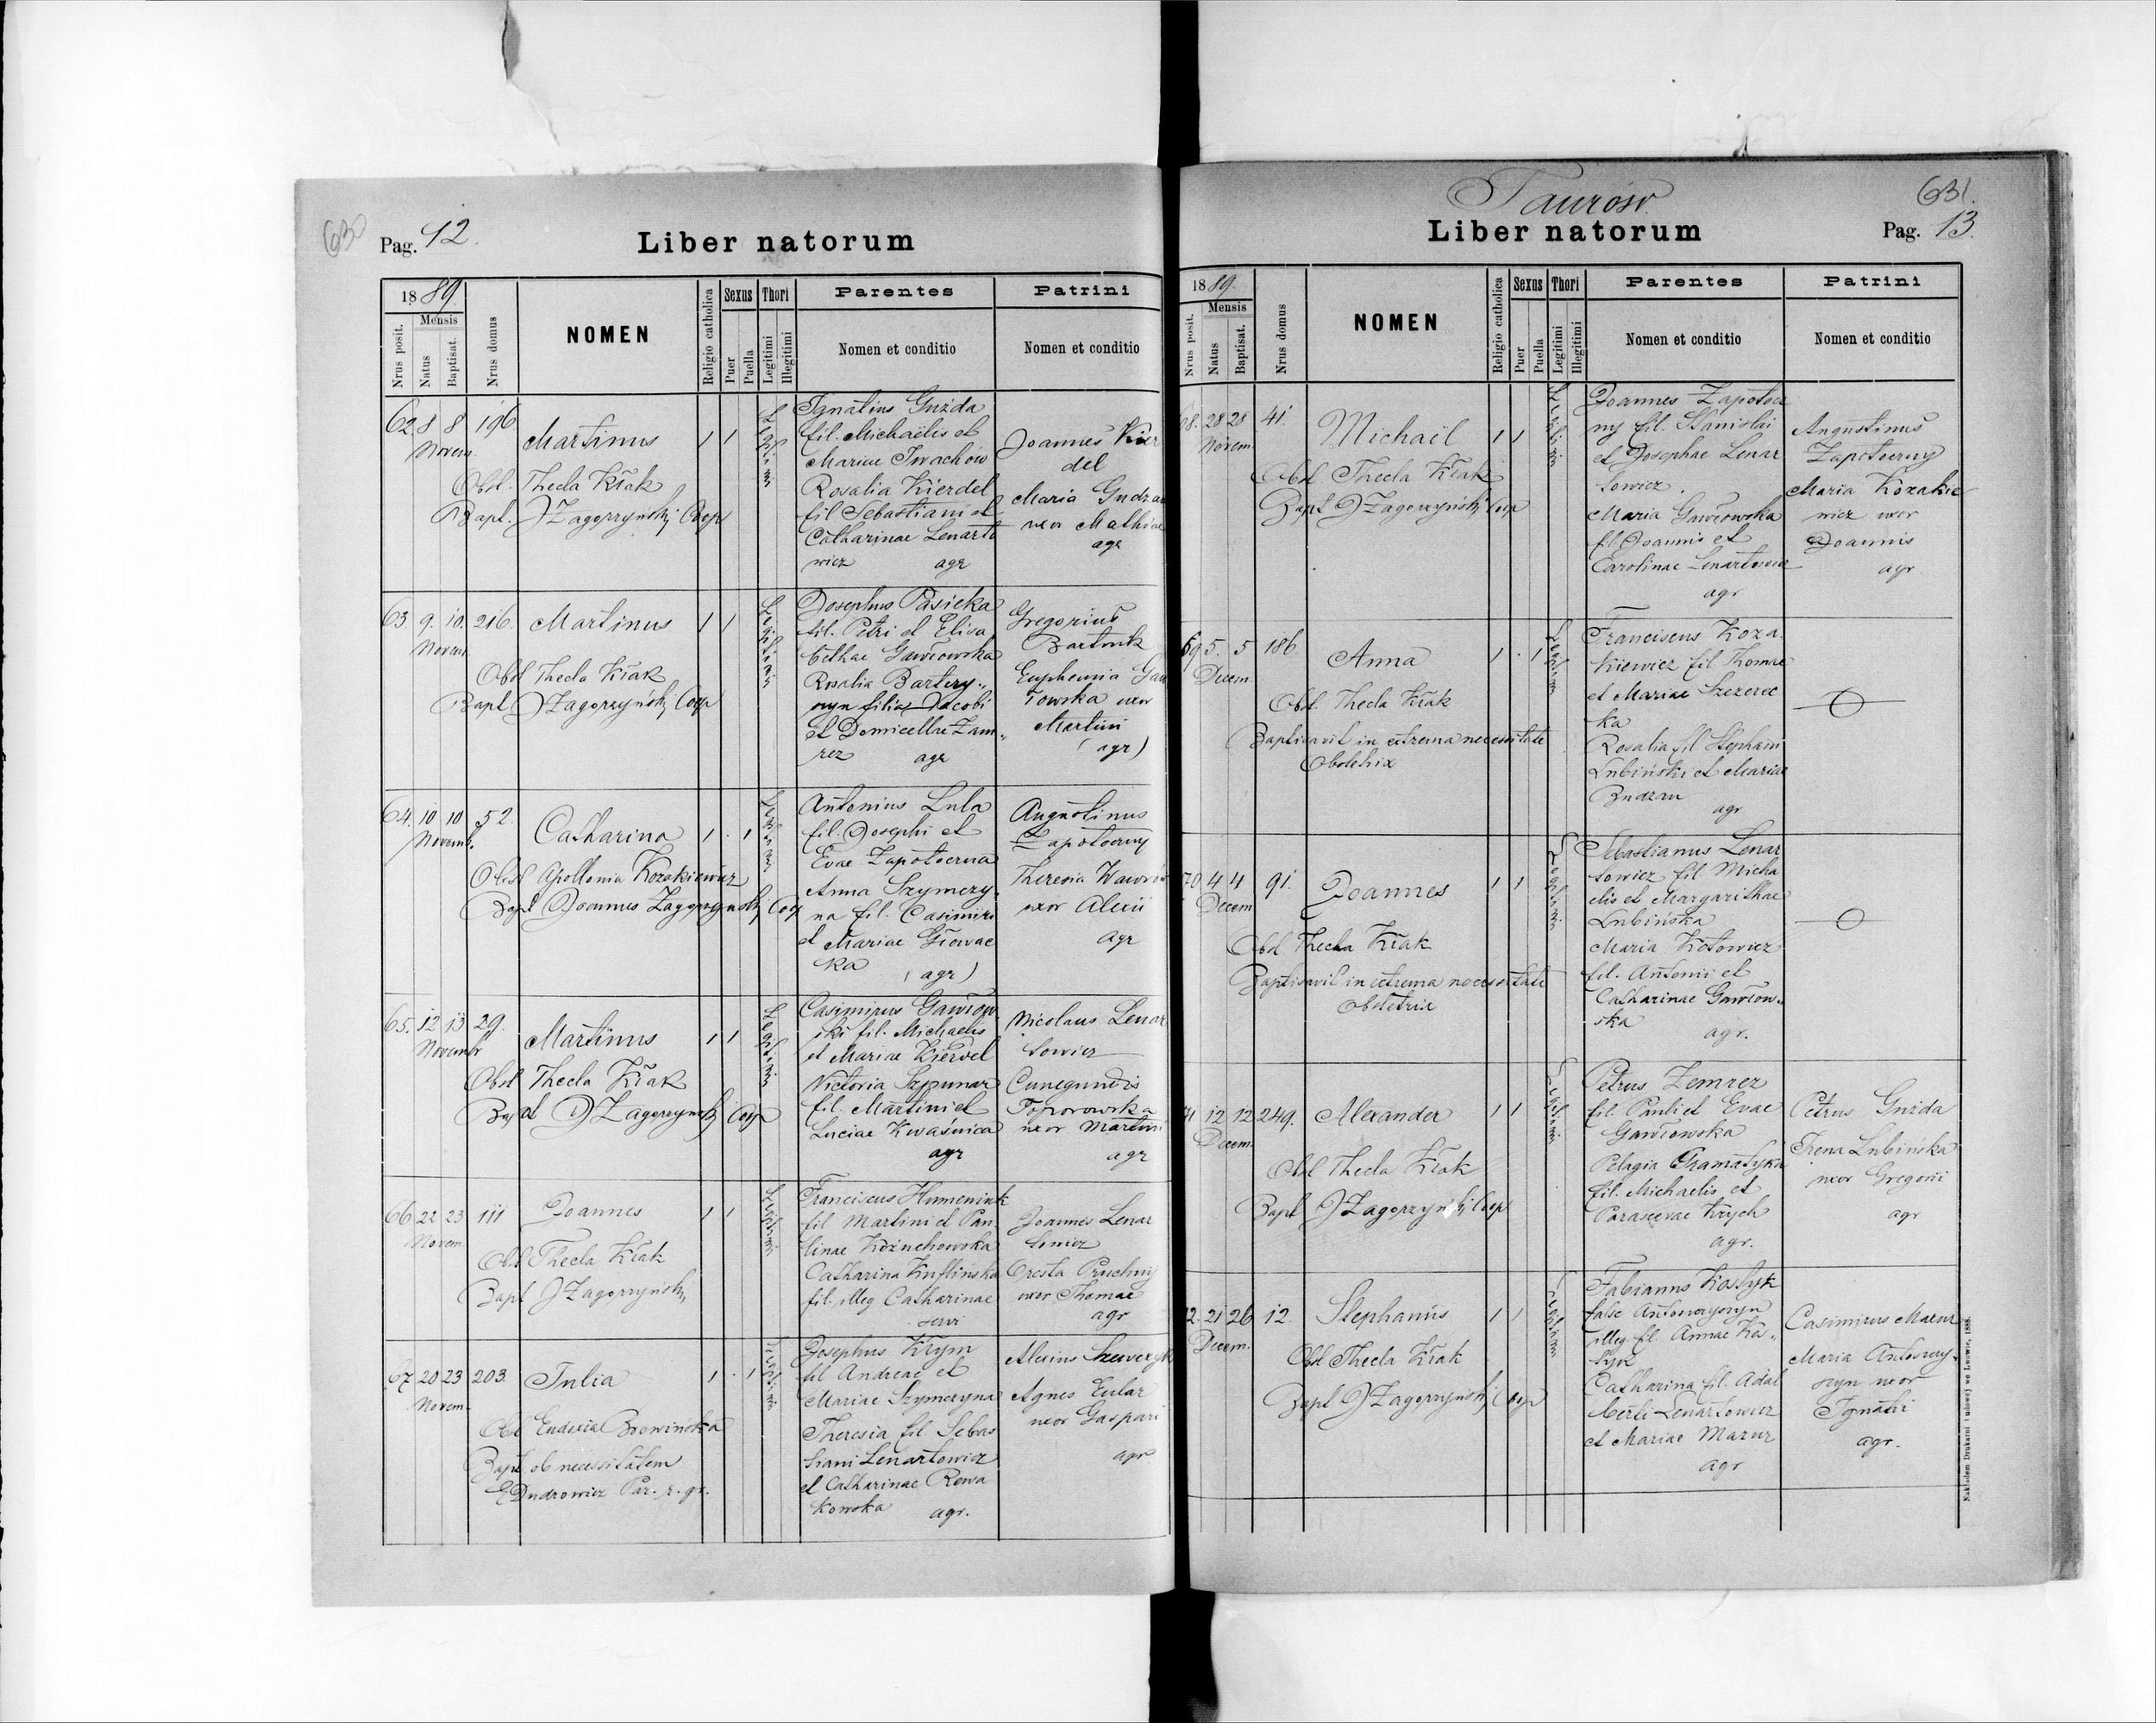 630
Pag. 12.
Liber natorum
1889.
Mensis
Nrus posit.
Natus
Baptisat.
Nrus domus
NOMEN
Religio catholica
Sexus
Puer
Puella
Thori
Legitimi
Illegitimi
Parentes
Nomen et conditio
Patrini
Nomen et conditio
62 8 8 196
Novem.
Martinus
Obst. Thecla Kłak
Bapt. J Zagorzyński Coop
Legitimi
Ignatius Guzda
fil. Michaëlis et
Mariae Iwachow
Rosalia Kierdel
fil Sebastiani et
Catharinae Lenarto
wicz agr
Joannes Kier
del
Maria
uxor Mathiae
agr
63 9. 10. 216.
Novem
Martinus
Obst Thecla Kłak
Bapt J Zagorzyński Coop
Legitimi
Josephus Pasieka
fil. Petri et Elisa
bethae Gawłowska
Rosalia Bartczy„
szyn filia Jacobi
et Domicellae Zam„
rez agr
Gregorius
Bartnik
Euphemia Gaw
łowska uxor
Martini
(agr)
64. 10 10 52
Novemb.
Catharina
Obst Apollonia Kozakiewicz
Bapt Joannes Zagorzyński Coop
Legitimi
Antonius Lula
fil. Josephi et
Evae Zapotoczna
Anna Szymczy
na fil. Casimiri
et Mariae Głowac
ka (agr)
Augustinus
Zapotoczny
Theresia
uxor Alexii
agr
65. 12 13 29.
Novembr
Martinus
Obst Thecla Kłak
Bapt J Zagorzyński Coop
Legitimi
Casimirus Gawłow
ski fil. Michaelis
et Mariae Kierdel
Victoria Szpunar
fil. Martini et
Luciae Kwaśnica
agr
Nicolaus Lenar
towicz
Cunegundis
Toporowska
uxor Martini
agr
66 22 23 111
Novem.
Joannes
Obst Thecla Kłak
Bapt J Zagorzyński
Legitimi
Franciscus Humeniuk
fil Martini et Pau
linae Kożuchowska
Catharina Kuflińska
fil. illeg Catharinae
servi
Joannes Lenar
towicz
Oresta Pruchny
uxor Thomae
agr
67 20 23 203.
Novem.
Julia
Obst Eudoxia Browińska
Bapt ob necessitatem
E Dudrowicz Par. r. gr.
Legitimi
Josephus Krym
fil Andreae et
Mariae Szymczyna
Theresia fil Sebas
tiani Lenartowicz
et Catharinae Rewa
kowska agr.
Alexius Szewczyk
Agnes Eular
uxor Gaspari
agr
Taurów.
631.
Liber natorum
Pag. 13.
1889.
Mensis
Nrus posit.
Natus
Baptisat.
Nrus domus
NOMEN
Religio catholica
Sexus
Puer
Puella
Thori
Legitimi
Illegitimi
Parentes
Nomen et conditio
Patrini
Nomen et conditio
68. 28 28 41.
Novem
Michaël
Obst Thecla Kłak
Bapt J Zagorzyński Coop
Legitimi
Joannes Zapotocz
ny fil. Stanislai
et Josephae Lenar
towicz.
Maria Gawłowska
fil Joannis et
Carolinae Lenartowicz
agr
Augustinus
Zapotoczny
Maria Kozakie
wicz uxor
Joannis
agr
69 5. 5 186.
Decem.
Anna
Obst. Thecla Kłak
Baptisavit in extrema necessitate
Obstetrix
Legitimi
Franciscus Koza
kiewicz fil Thomae
et Mariae Szczerec
ka
Rosalia fil Stephani
Lubiński et Mariae
Budzan
agr
70 4 4 91.
Decem
Joannes
Obst Thecla Kłak
Baptisavit in extrema necessitate
Obstetrix
Legitimi
Sebastianus Lenar
towicz fil Micha
elis et Margarithae
Lubińska
Maria Kotowicz
fil. Antonii et
Catharinae Gawłow„
ska
agr.
71 12 12 249.
Decem.
Alexander
Obst Thecla Kłak
Bapt J Zagorzyński Coop
Legitimi
Petrus Zemrez
fil. Pauli et Evae
Gawłowska
Pelagia Gramatyka
fil. Michaelis et
Parascevae Krych
agr.
Petrus Guzda
Irena Lubińska
uxor Gregorii
agr
72. 21 26 12.
Decem.
Stephanus
Obst Thecla Kłak
Bapt J Zagorzyński Coop
Legitimi
Fabianus Kostyk
false Antonczyszyn
illeg. fil. Annae Kos„
tyk
Catharina fil. Adal
berti Lenartowicz
et Mariae Mazur
agr
Casimirus Mazur
Maria Antoszczy„
szyn uxor
Ignatii
agr.
Nakładem Drukarni Ludowej we Lwowie, 1888.